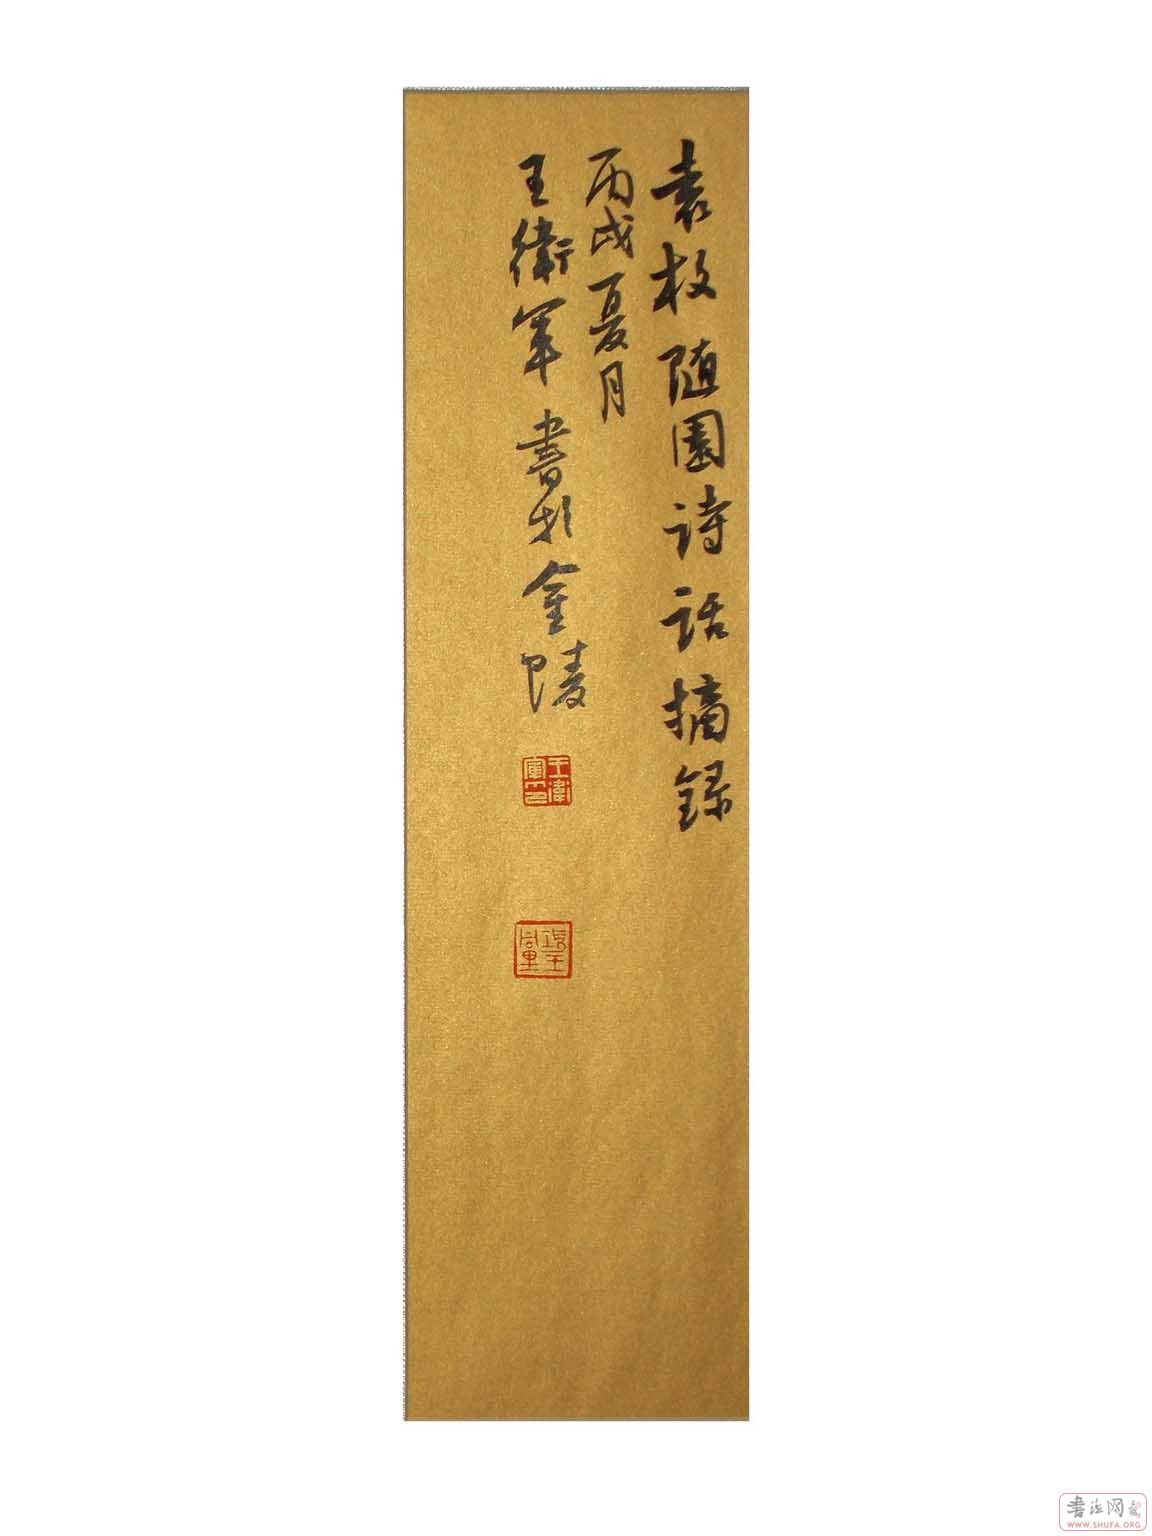 袁枚随園诗话摘録
丙戌夏月
王衛軍書於金陵
王衛軍印
書法网
WWW.SHUFA.ORG